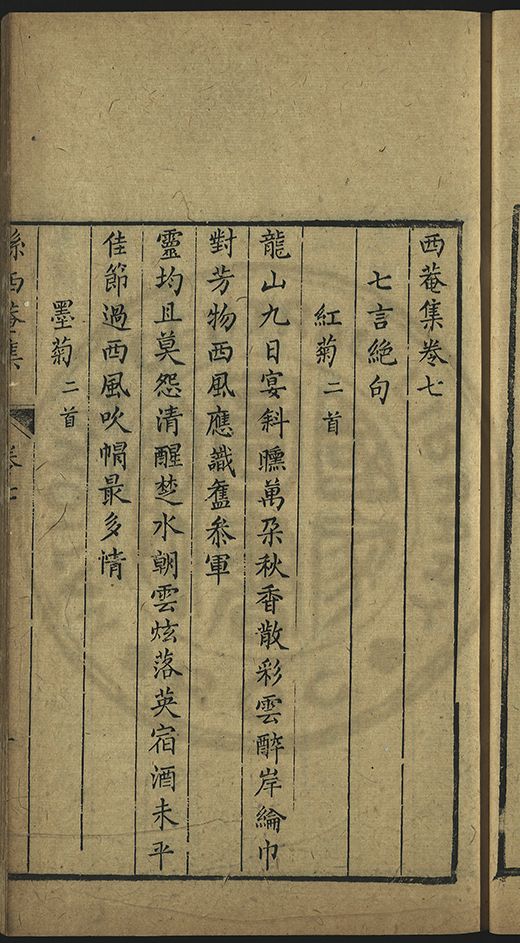 西菴集卷七
七言絶句
紅菊二首
龍山九日宴斜曛萬朶秋香散彩雲醉岸綸巾
對芳物西風應識舊叅軍
靈均且莫怨清醒楚水朝雲炫落英宿酒未平
佳節過西風吹帽最多情
墨菊二首
孫西菴集 卷七